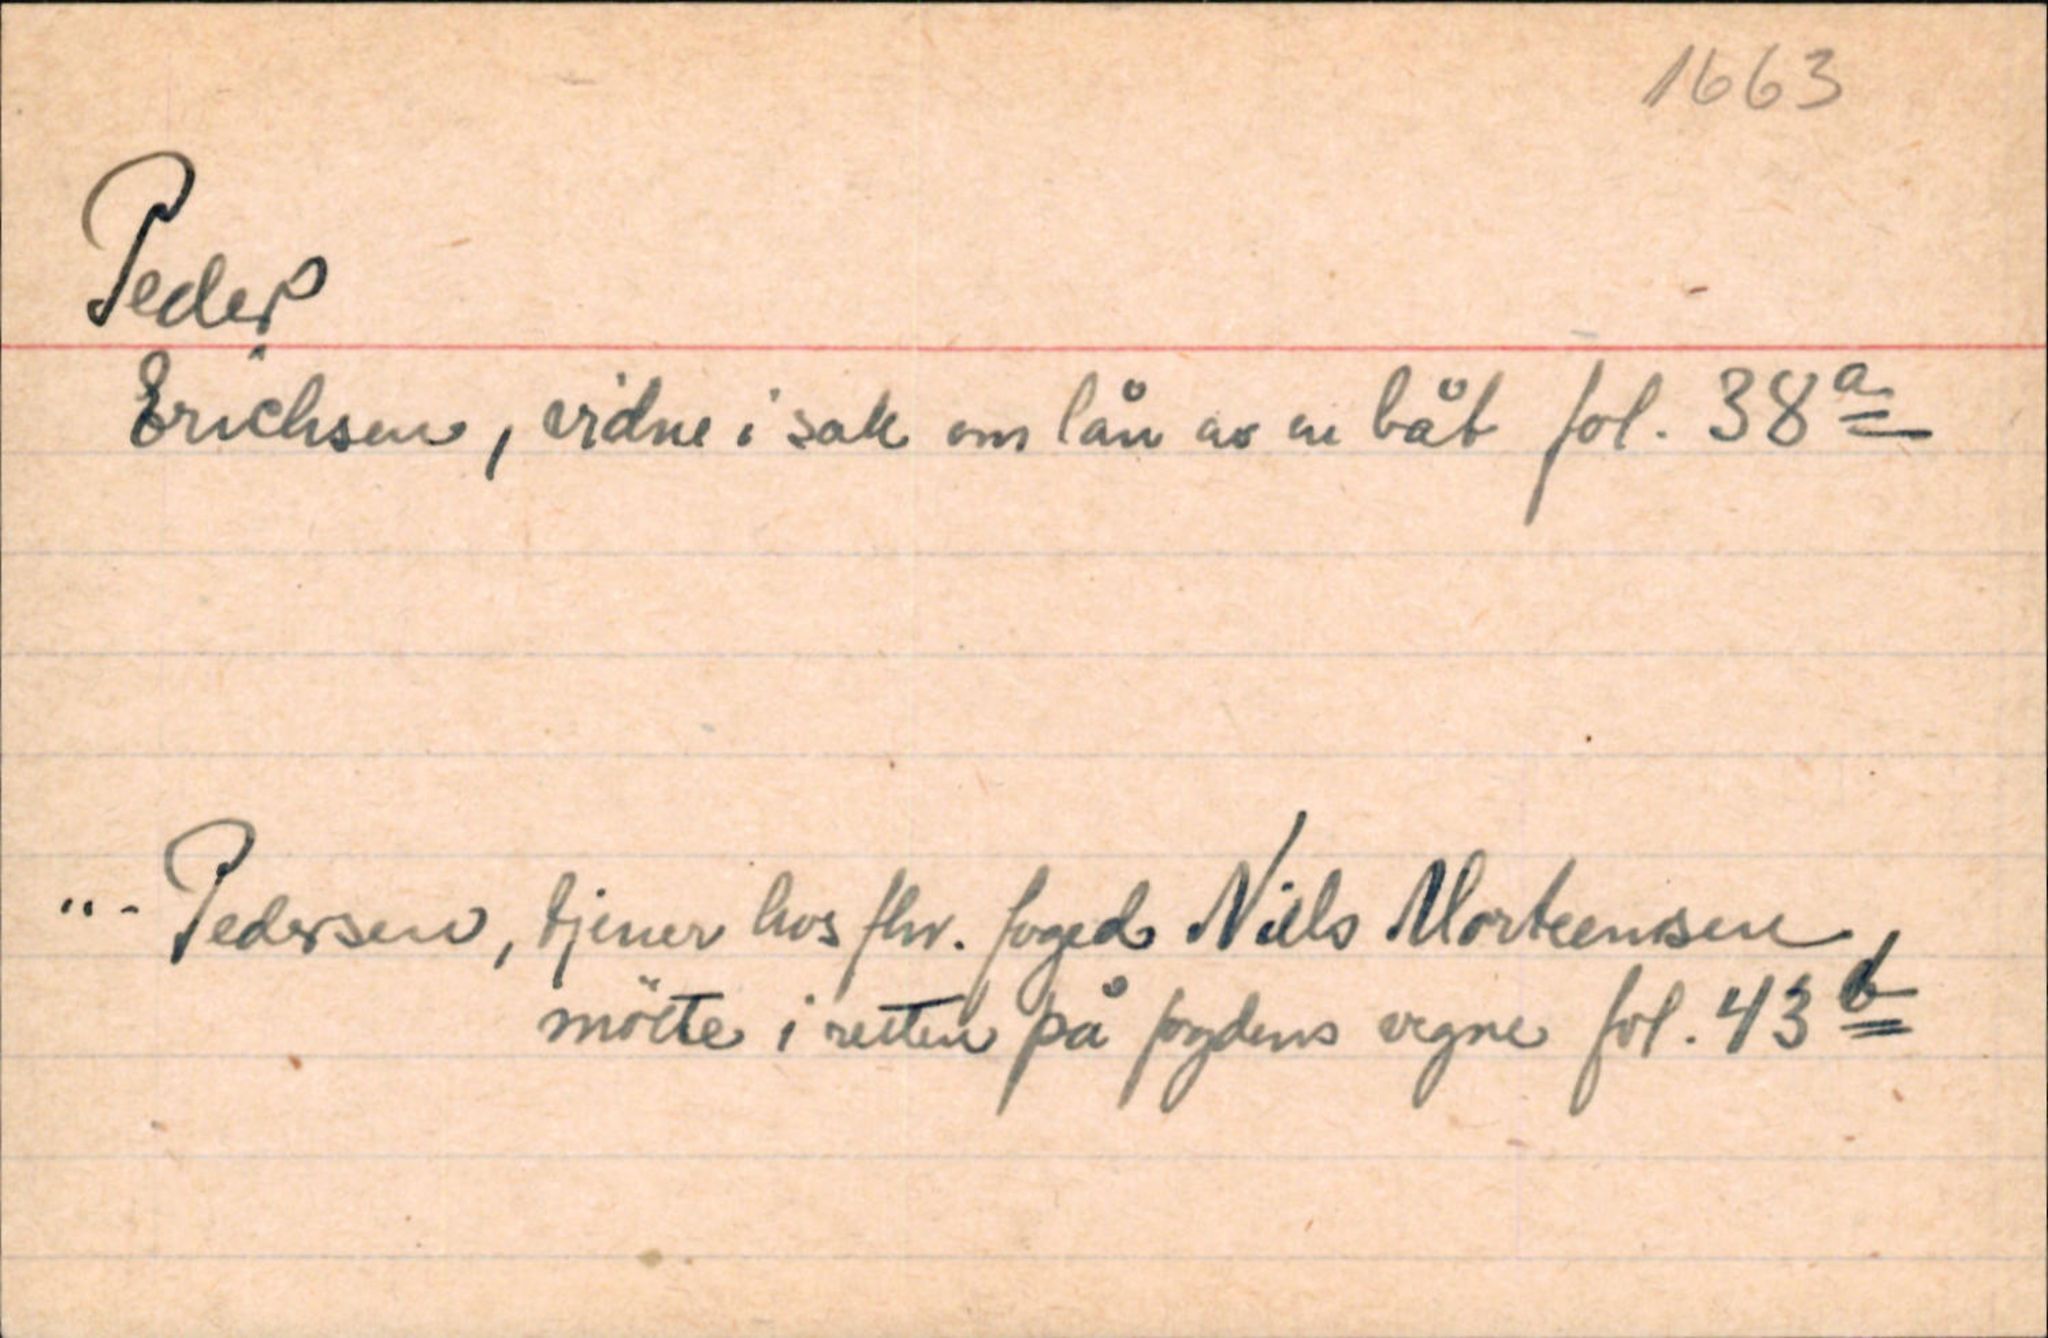 1663
Peder
Erichsen, vidne i sak om lån av en båt fol. 38a
"- Pedersen, tjener hos fhv. foged Niels Morteensen,
mötte i retten på fogdens vegne fol. 43b